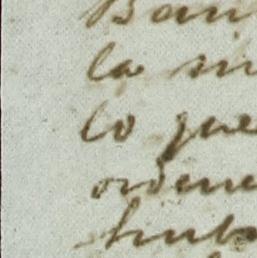 Ban
la in
lo que
ordene
hub